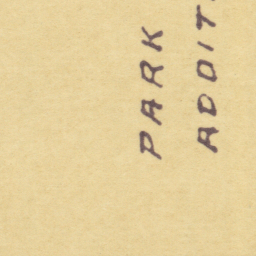 PARK
ADDIT